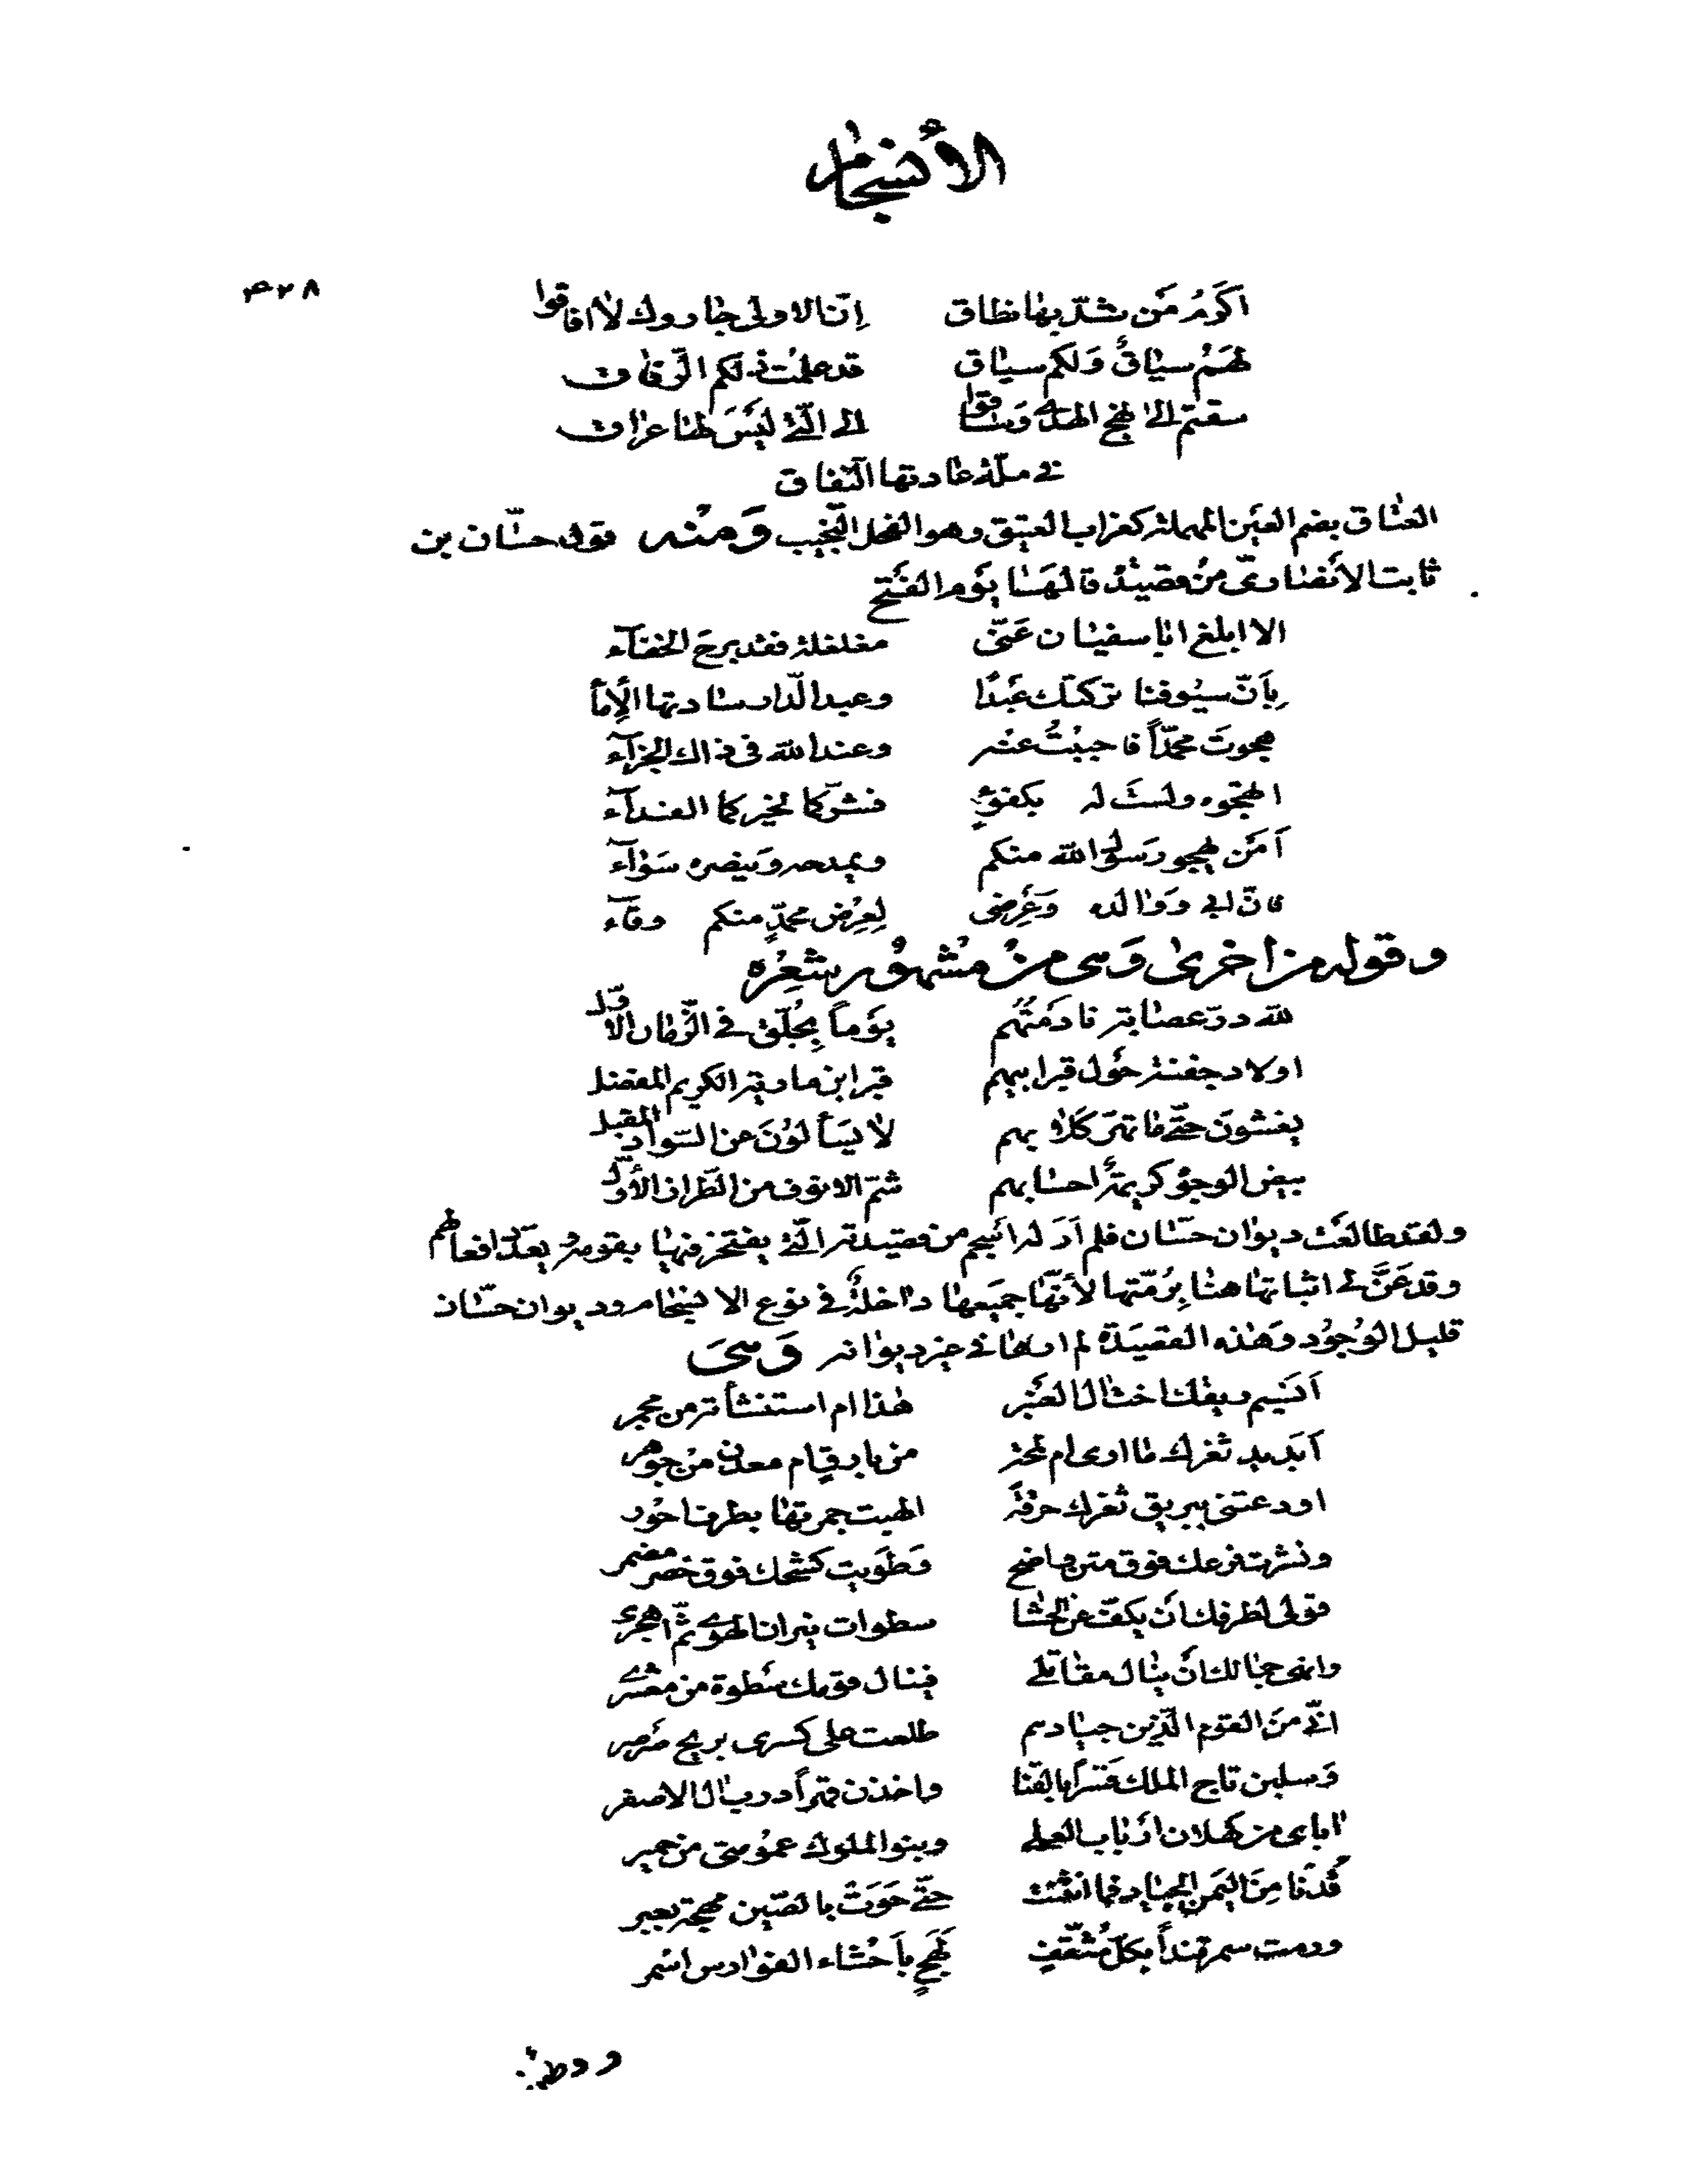 الأنسجام
٤٢٨
اكرم من شدّ بها نطاق انّ الاولى جاروك لا افاقوا
لهم سياق ولكم سياق قد علمت ذلكم الرّفاق
سقتم الى نهج الهدى وساقوا الى الّتي ليس لها عراق
في ملّة عادتها النّفاق
العتاق بضم العين المهملة كغراب العتيق وهو الفحل النّجيب ومنه قول حسّان بن
ثابت الأنصاريّ من قصيدة قالها يوم الفتح
الا ابلغ ابا سفيان عنّي مغلغلة فقد برح الخفآء
بأنّ سيوفنا تركتك عبدًا وعبد الدّار سادتها الإمآء
هجوت محمّداً فاجبت عنه وعند الله في ذاك الجزآء
اتهجوه ولست له بكفوٍ فشرّكما لخيركما الفدآء
أمن يهجو رسول الله منكم ويمدحه وينصره سوآء
فانّ ابي ووالده وعرضي لعرض محمدٍ منكم وقآء
وقوله من اخرى وهي من مشهور شعره
لله درّ عصابة نادمتهم يوماً بجلّق في الزّمان الاوّل
اولاد جفنة حول قبر ابيهم قبر ابن مارية الكريم المفضل
يغشون حتّى ما تهرّ كلابهم لا يسألون عن السّواد المقبل
بيض الوجوه كريمة احسابهم شمّ الانوف من الطّراز الأوّل
ولقد طالعت ديوان حسّان فلم أر له انسجم من قصيدته الّتي يفتخر فيها بقومه ويعدّ افعالهم
وقد عنّ لي اثباتها هنا برمّتها لأنّها جميعها داخلة في نوع الانسجام وديوان حسّان
قليل الوجود وهذه القصيدة لم ارها في غير ديوانه وهي
أنسيم ريقك اخت آل العنبر هذا ام استنشأته من مجمر
أبديد ثغرك ما ارى ام لمحة من بارق ام معدن من جوهر
اودعتني ببريق ثغرك حرقة الهبت جمرتها بطرف احور
ونشرت فرعك فوق متن واضح وطويت كشحك فوق خصر مضمر
قولي لطرفك ان يكفّ عن الحشا سطوات نيران الهوى ثمّ اهجري
وانهى جمالك ان ينال مقاتلي فينال قومك سطوة من معشري
انّي من القوم الّذين جيادهم طلعت على كسرى بريح صرصر
وسلبن تاج الملك قسراً بالقنا واخذن قهراً درب آل الاصفر
آباي من كهلان ارباب العلى وبنو الملوك عمومتي من حمير
قُدنا من اليمن الجياد فما انثنت حتّى حوت بالصّين مهجة يعبر
ورمت سمرقنداً بكلّ مثقّفٍ لهجٍ بأحشاء الفوارس اسمر